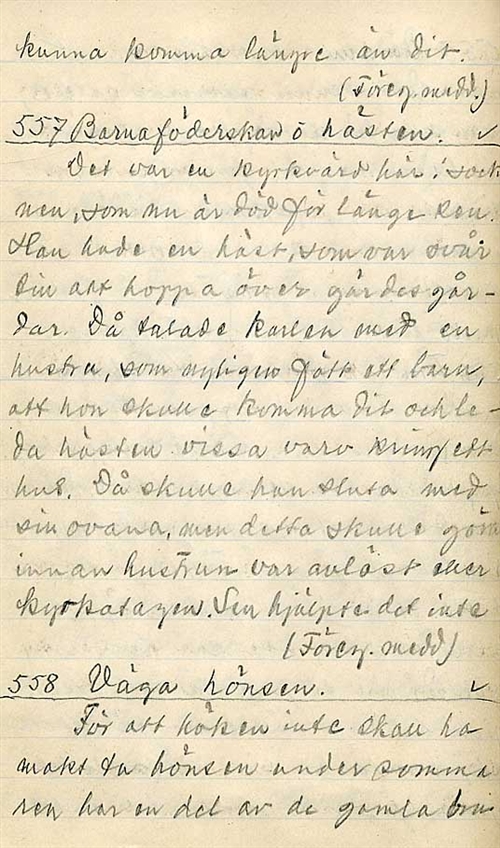 kunna komma längre än dit.
(Föreg. medd.)
557 Barnaföderskan o hästen. ✓
Det var en kyrkvärd här i sock
nen, som nu är död för länge sen.
Han hade en häst, som var svår
till att hoppa över gärdesgår-
dar. Då talade karlen med en
hustru, som nyligen fått ett barn,
att hon skulle komma dit och le-
da hästen vissa varv kring ett
hus. Då skulle han sluta med
sin ovana, men detta skulle göra
innan hustrun var avlöst eller
kyrkotagen. Sen hjälpte det inte
(Föreg. medd)
558 Väga hönsen. ✓
För att höken inte skall ha
makt ta hönsen under somma
ren har en del av de gamla